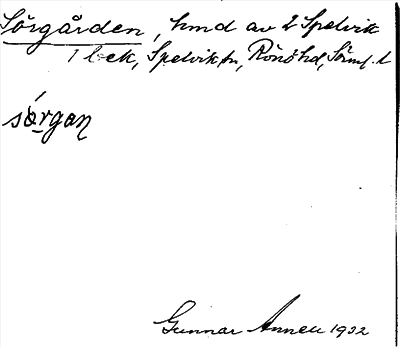 Sörgården, hmd av 2 Spelvik
1 bek, Spelviks sn, Rönöhd, Sörml. l
sörgaɳ
Gunnar Annell 1932